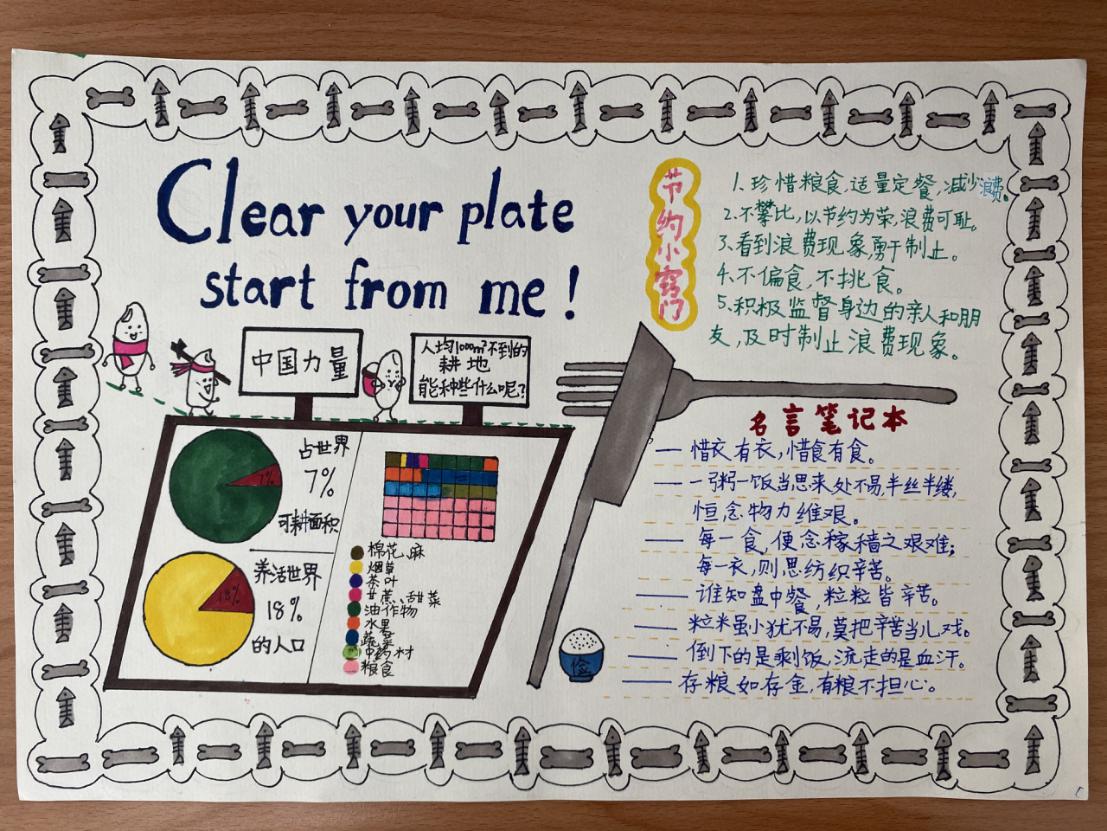 Clear your plate
start from me!
节约小窍门
1、珍惜粮食,适量定餐,减少浪费。
2、不攀比,以节约为荣,浪费可耻。
3、看到浪费现象,勇于制止。
4、不偏食,不挑食。
5、积极监督身边的亲人和朋
友,及时制止浪费现象。
中国力量
人均1000m²不到的
耕地
能种些什么呢?
占世界
7%
7%
可耕面积
养活世界
18%
18%
的人口
棉花、麻
烟草
茶叶
甘蔗、甜菜
油作物
水果
蔬菜
中药材
粮食
名言笔记本
— 惜衣有衣,惜食有食。
— 一粥一饭当思来处不易,半丝半缕,
恒念物力维艰。
— 每一食,便念稼穑之艰难;
每一衣,则思纺织辛苦。
— 谁知盘中餐,粒粒皆辛苦。
— 粒米虽小犹不易,莫把辛苦当儿戏。
— 倒下的是剩饭,流走的是血汗。
— 存粮如存金,有粮不担心。
俭